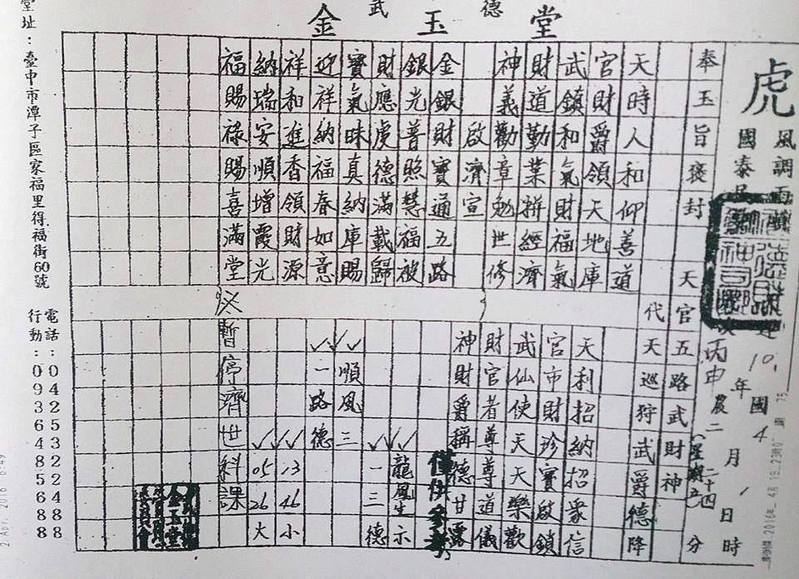 武德
金玉堂
虎
風調雨順
國泰民
奉玉旨褒封 天官五路武財神
代天巡狩武爵德降
天時人和仰善道
官財爵領天地庫
武鎮和氣財福氣
財道勤業拼經濟
神義勸章勉世修
啟濟宣
金銀財寶通五路
銀光普照慧福被
財應虔德滿載歸
寶氣昧真納庫賜
迎祥納福春如意
祥和進香領財源
納瑞安順增霞光
福賜祿賜喜滿堂
天利招納招眾信
官市財珍寶啟鎖
武仙使天天樂歡
財官者尊尊道儀
神財爵稱德甘露
僅供參考
龍鳳生示
一三德
順風三
一路德
13 46 小
05 26 大
暫停濟世科課
丙申年農二月二十四日時分
(星期五)
電話:0425322488
行動:0936485688
堂址:臺中市潭子區家福里得福街60號